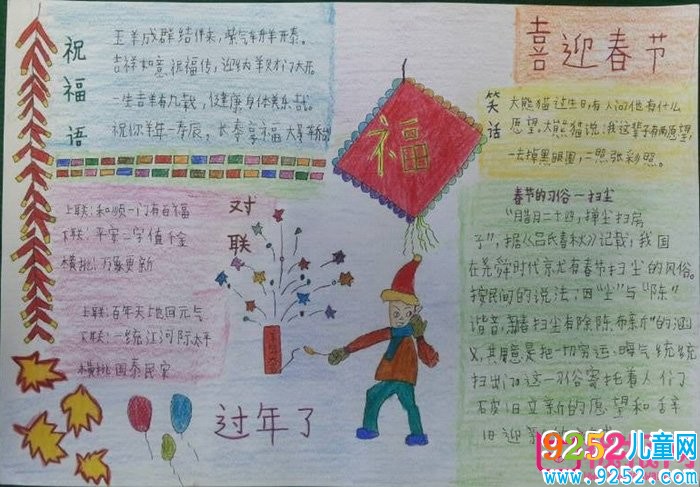 祝福语
玉羊成群结伴来,紫气
吉祥如意
一生吉羊有几载,健康身体
祝你羊年
福
喜迎春节
笑话
大熊猫过生日,有人问他有什么
愿望,大熊猫说:我这辈子有两愿望,
一去掉黑眼圈,二照张彩照。
对联
上联:和顺一门有百福
下联:平安二字值千金
横批:万象更新
上联:百年天地回元气
下联:一统江河际太平
横批 国泰民安
春节的习俗一扫尘
"腊月二十四,掸尘扫房
子",据《吕氏春秋》记载,我国
在尧舜时代就有春节扫尘的风俗。
按民间的说法:因"尘"与"陈"
谐音,新春扫尘有"除陈布新"的涵
义,其用意是把一切穷运、晦气统统
扫出门。这一习俗寄托着人们
破旧立新的愿望和辞
旧迎
过年了
9252儿童网
www.9252.com